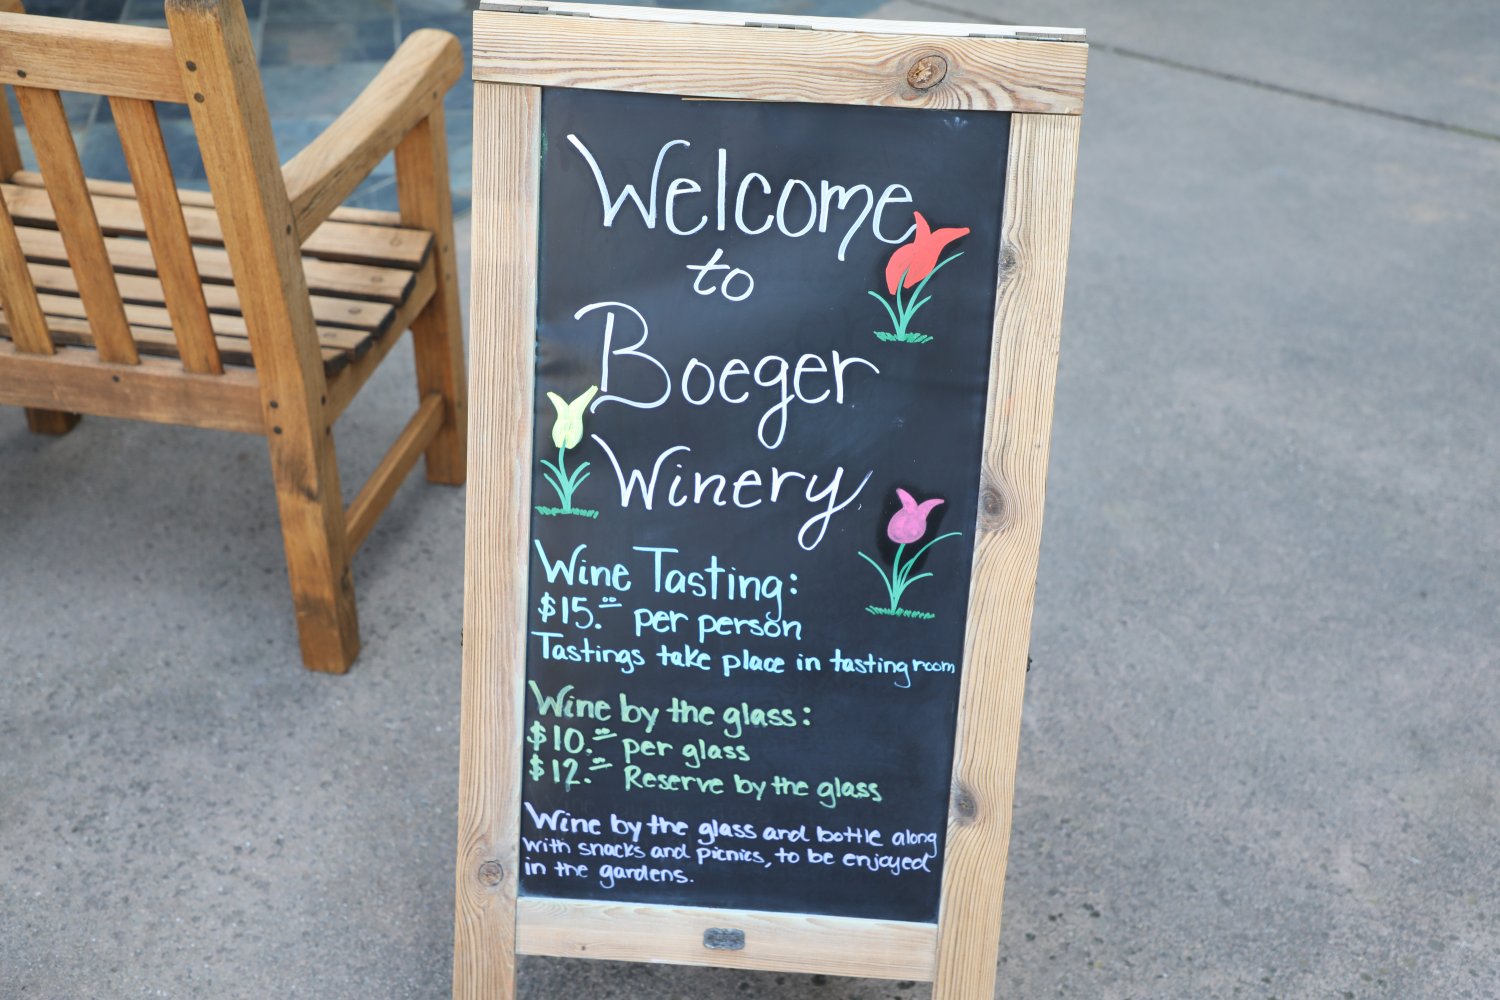 Welcome
to
Boeger
Winery
Wine Tasting:
$15.00 per person
Tastings take place in tasting room
Wine by the glass:
$10.00 per glass
$12.00 Reserve by the glass
Wine by the glass and bottle along
with snacks and picnics, to be enjoyed
in the gardens.